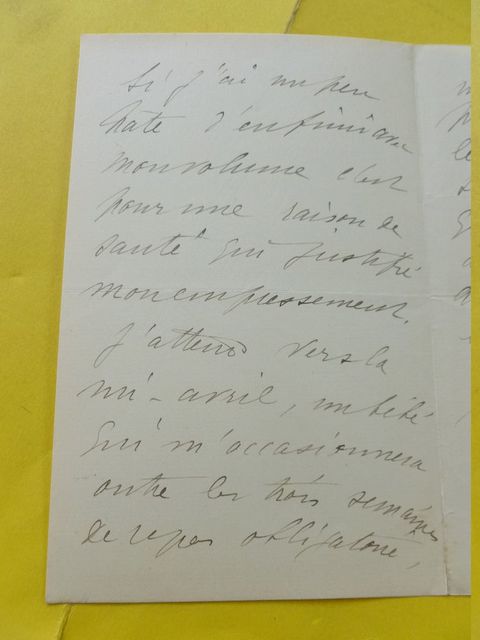 Si j'ai un peu
hate d'en finir avec
mon volume c'est
pour une raison de
santé qui justifie
mon empressement.
J'attends vers la
mi-avril, un bébé
qui m'occasionnera
outre les trois semaines
de repos obligatoire,